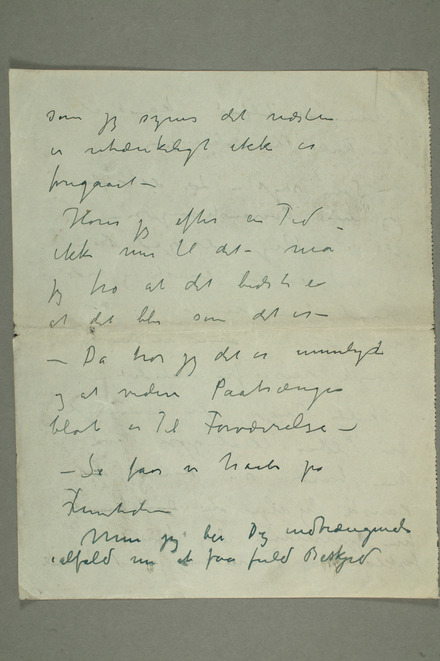 som jeg synes det næsten
er utænkeligt ikke er
foregaaet –
Hører jeg efter en Tid –
ikke mer til det – maa
jeg tro at det bedste er
at det blir som det er –
– Da tror jeg det er umuligt
og at videre Paatrænge
blot er til Forværrelse –
– Så faar vi haabe på
Fremtiden
Men jeg ber Dig indtrængende
ialfald nu at faa fuld Beskjed